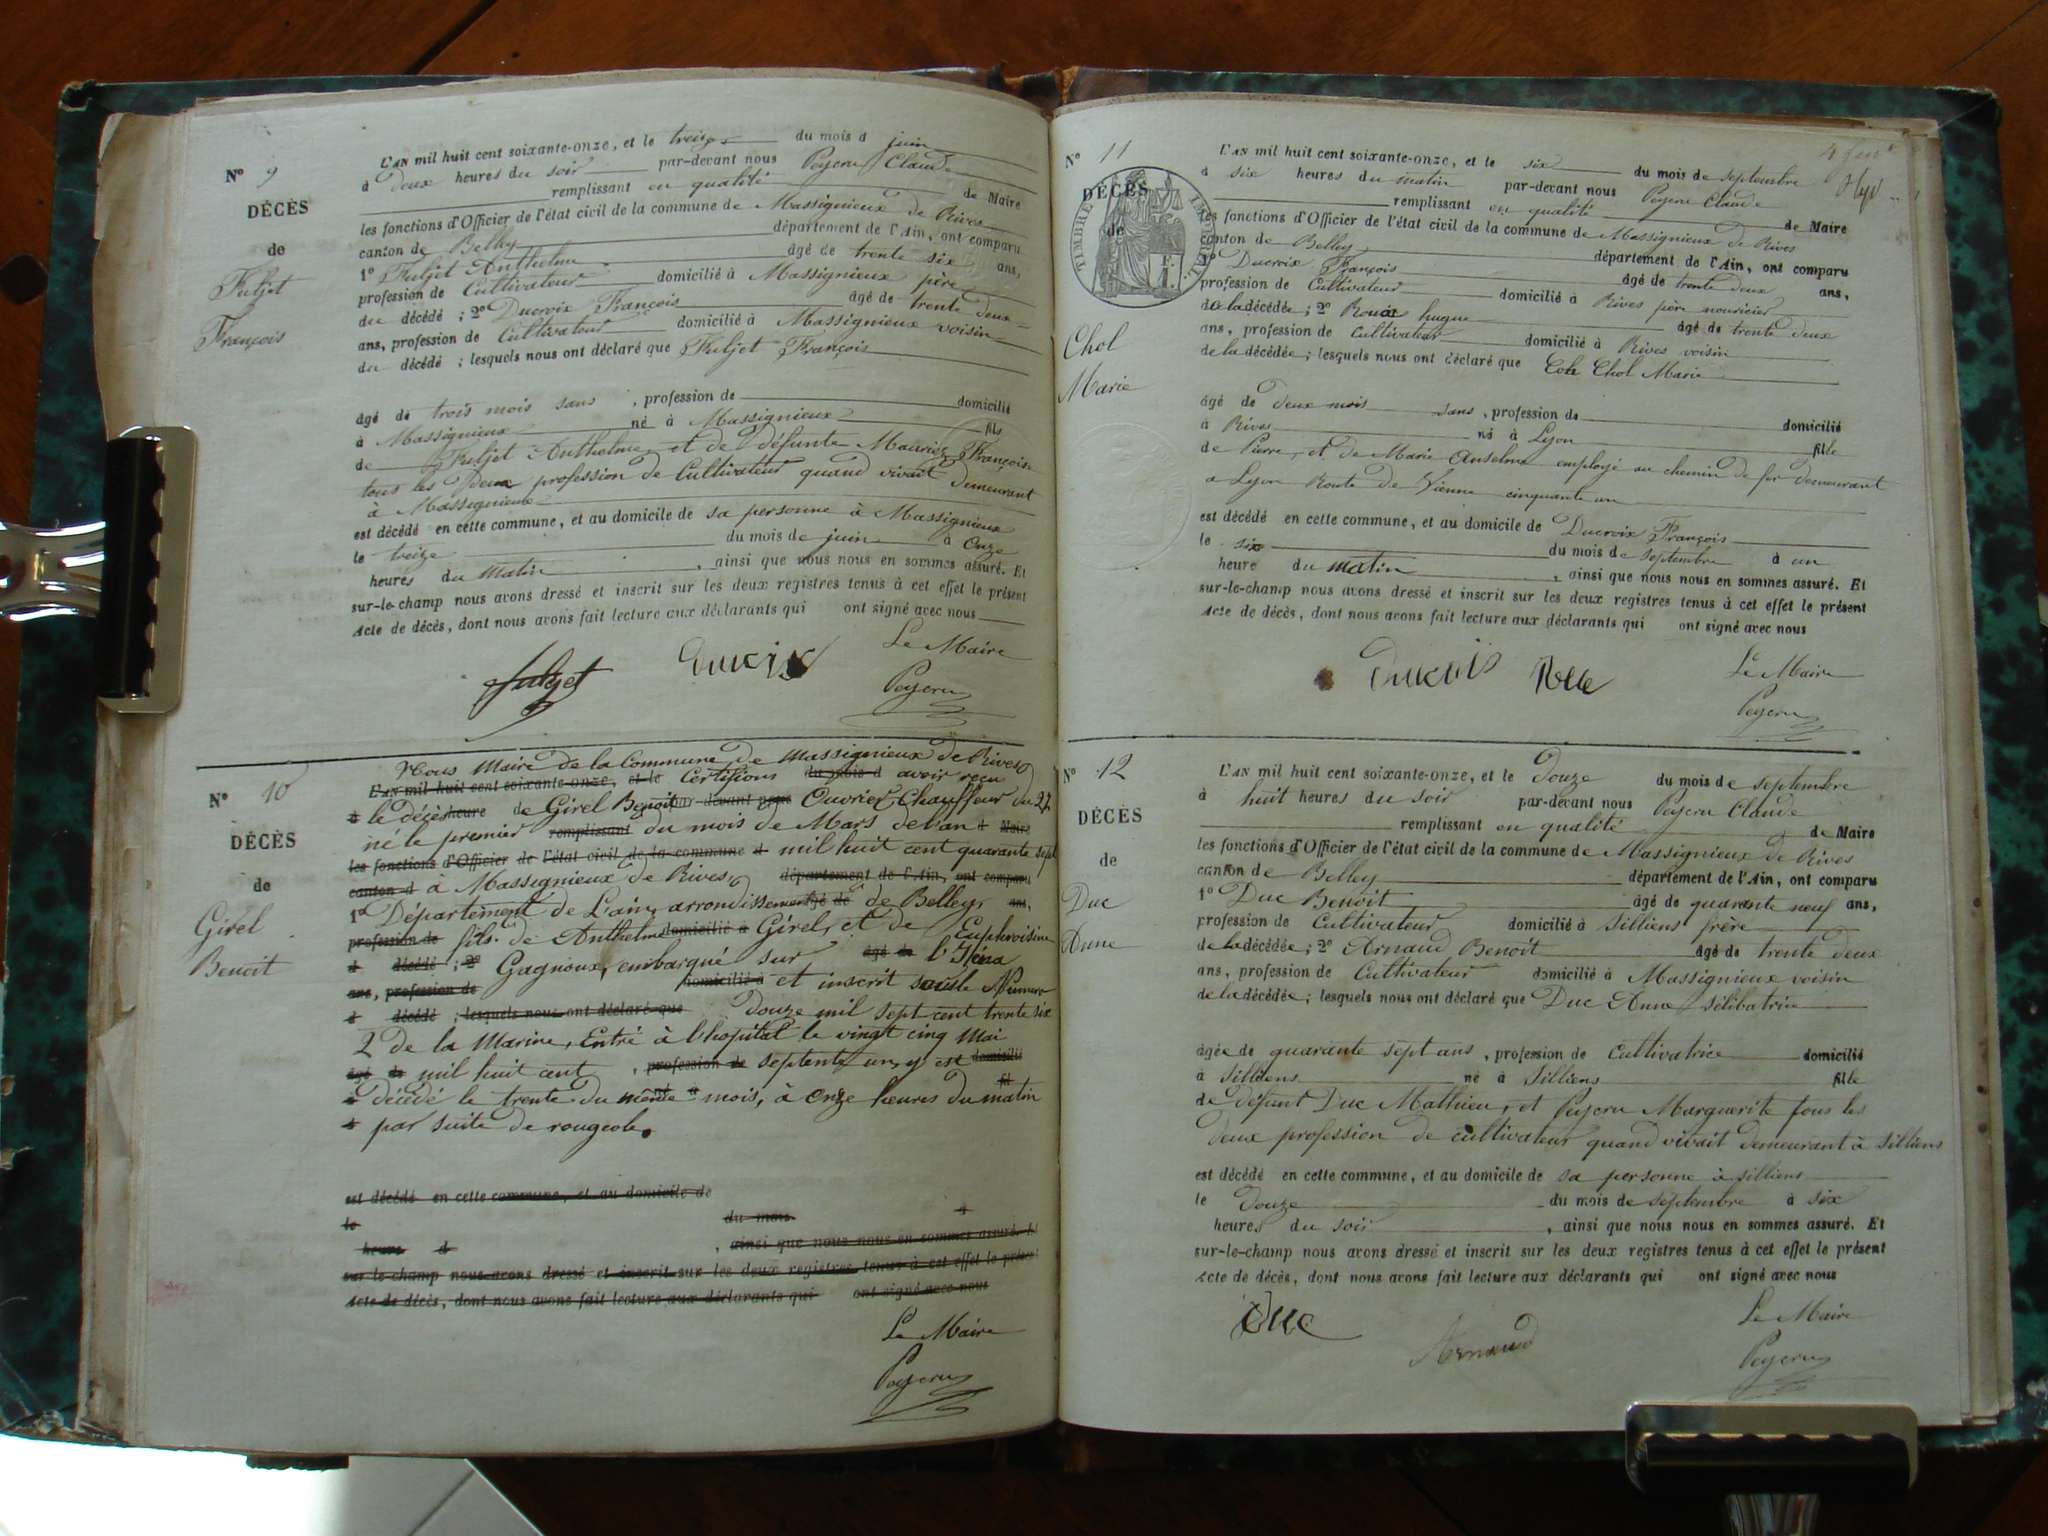 N° 9
DÉCÈS
de
Fuljet
François
L'AN mil huit cent soixante-onze, et le treize du mois d juin
à deux heures du soir par-devant nous Peycru Claude
remplissant en qualité de Maire
les fonctions d'Officier de l'état civil de la commune de Massignieux de Rives
canton de Belley département de l'Ain, ont comparu
1° Fuljet Anthelme âgé de trente six ans,
profession de Cultivateur domicilié à Massignieux père
du décédé ; 2° Ducroix François âgé de trente deux
ans, profession de Cultivateur domicilié à Massignieux voisin
du décédé ; lesquels nous ont déclaré que Fuljet François
âgé de trois mois sans , profession de domicilié
à Massignieux né à Massignieux fils
de Fuljet Anthelme et de défunte Françoise
tous les deux profession de Cultivateur quand vivait demeurant
à Massignieux
est décédé en cette commune, et au domicile de sa personne à Massignieux
le treize du mois de juin à onze
heures du matin , ainsi que nous nous en sommes assuré. Et
sur-le-champ nous avons dressé et inscrit sur les deux registres tenus à cet effet le présent
acte de décès, dont nous avons fait lecture aux déclarants qui ont signé avec nous
Le Maire
Fuljet
Peycru
N° 10
DÉCÈS
de
Girel
Benoit
Nous Maire de la Commune de Massignieux de Rives
L'AN mil huit cent soixante-onze, et le Certifions du mois d avoir reçu
à le décès heure de Girel Benoit par-devant nous Ouvrier Chauffeur du 27
né le premier remplissant du mois de Mars de l'an d Maire
les fonctions d'Officier de l'état civil de la commune d mil huit cent quarante sept
canton d à Massignieux de Rives, département de l'Ain, ont comparu
1° Département de L'ain, arrondissement âgé de de Belley, ans,
profession de fils de Anthelme domicilié à Girel, et de Euphroisine
d décédé ; 2° Gagnoux, embarqué sur âgé de
ans, profession de domicilié à et inscrit sous le Numero
d décédé ; lesquels nous ont déclaré que Douze mil sept cent trente six
2 de la Marine, Entré à l'hopital le vingt cinq Mai
âgé de mil huit cent , profession de septente un, y est domicilié
à décédé le trente du même né à mois, à onze heures du matin fil
d par suite de rougeole.
est décédé en cette commune, et au domicile de
le du mois d
heure d , ainsi que nous nous en sommes assuré. Et
sur-le-champ nous avons dressé et inscrit sur les deux registres tenus à cet effet le présent
acte de décès, dont nous avons fait lecture aux déclarants qui ont signé avec nous
Le Maire
Peycru
N° 11
DÉCÈS
de
TIMBRE IMPERIAL
Chol
Marie
L'AN mil huit cent soixante-onze, et le six du mois de septembre
à six heures du matin par-devant nous Peycru Claude
remplissant en qualité de Maire
les fonctions d'Officier de l'état civil de la commune de Massignieux de Rives
canton de Belley département de l'Ain, ont comparu
1° Ducroix François âgé de trente deux ans,
profession de Cultivateur domicilié à Rives père nouricier
de la décédée ; 2° hugue âgé de trente deux
ans, profession de Cultivateur domicilié à Rives voisin
de la décédée ; lesquels nous ont déclaré que Chol Marie
âgé de deux mois sans , profession de domicilié
à Rives né à Lyon fille
de Pierre, et de Marie Anselme employé au chemin de fer demeurant
a Lyon Route de Vienne cinquante un
est décédé en cette commune, et au domicile de Ducroix François
le six du mois de septembre à un
heure du matin , ainsi que nous nous en sommes assuré. Et
sur-le-champ nous avons dressé et inscrit sur les deux registres tenus à cet effet le présent
acte de décès, dont nous avons fait lecture aux déclarants qui ont signé avec nous
Le Maire
Peycru
N° 12
DÉCÈS
de
Duc
Anne
L'AN mil huit cent soixante-onze, et le Douze du mois de septembre
à huit heures du soir par-devant nous Peycru Claude
remplissant en qualité de Maire
les fonctions d'Officier de l'état civil de la commune de Massignieux de Rives
canton de Belley département de l'Ain, ont comparu
1° Duc Benoit âgé de quarante neuf ans,
profession de Cultivateur domicilié à Silliens frère
de la décédée ; 2° Arnaud Benoit âgé de trente deux
ans, profession de Cultivateur domicilié à Massignieux voisin
de la décédée ; lesquels nous ont déclaré que Duc Anne Silibatrice
âgée de quarante sept ans , profession de Cultivatrice domicilié
à Silliens né à Silliens fille
de défunt Duc Mathieu, et Peycru Marguerite tous les
deux profession de cultivateur quand vivait demeurant à Silliens
est décédé en cette commune, et au domicile de sa personne à Silliens
le Douze du mois de septembre à six
heures du soir , ainsi que nous nous en sommes assuré. Et
sur-le-champ nous avons dressé et inscrit sur les deux registres tenus à cet effet le présent
acte de décès, dont nous avons fait lecture aux déclarants qui ont signé avec nous
Le Maire
Duc
Arnaud
Peycru